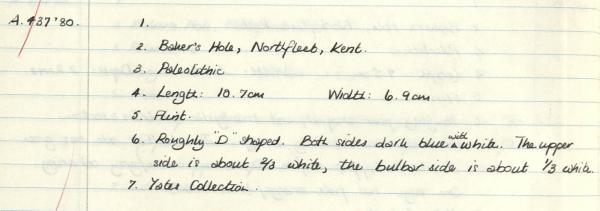 A.437'80. 1.
2. Baker's Hole, Northfleet, Kent.
3. Paleolithic
4. Length: 10.7cm Width: 6.9cm
5. Flint.
6. Roughly "D" shaped. Both sides dark blue with white. The upper
side is about 2/3 white, the bulbar side is about 1/3 white.
7. Yates Collection.